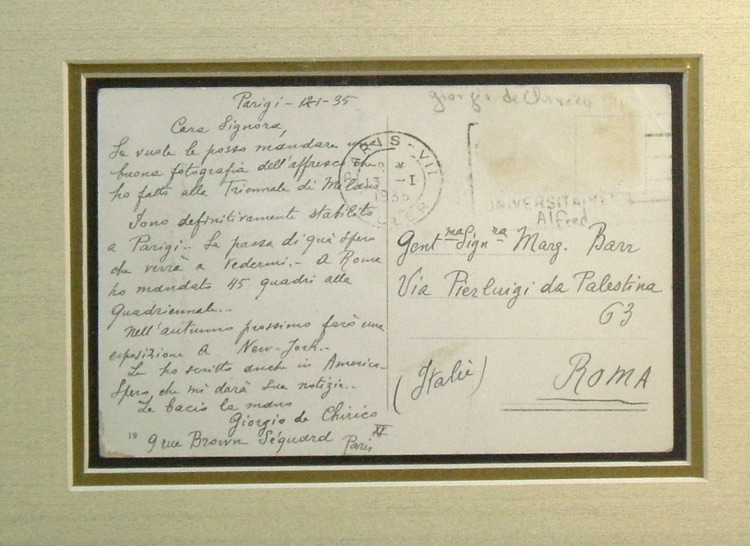 Parigi - 12-1-35
Cara Signora,
Se vuole le posso mandare una
buona fotografia dell'affresco che
ho fatto alla Triennale di Milano
Sono definitivamente stabilito
a Parigi.- Se passa di quà spero
che verrà a vedermi.- A Roma
ho mandato 45 quadri alla
Quadriennale.-
Nell'autunno prossimo farò una
esposizione a New-York.-
Le ho scritto anche in America.-
Spero che mi darà sue notizie.-
Le bacio la mano
Giorgio de Chirico
9 rue Brown Séquard Paris XV
19
giorgio de Chirico
PARIS-VII
13 -I
1935
UNIVERSITAIRE
Alfred
Gent.ma Sign.ra Marg. Barr
Via Pierluigi da Palestina
63
(Italie) ROMA